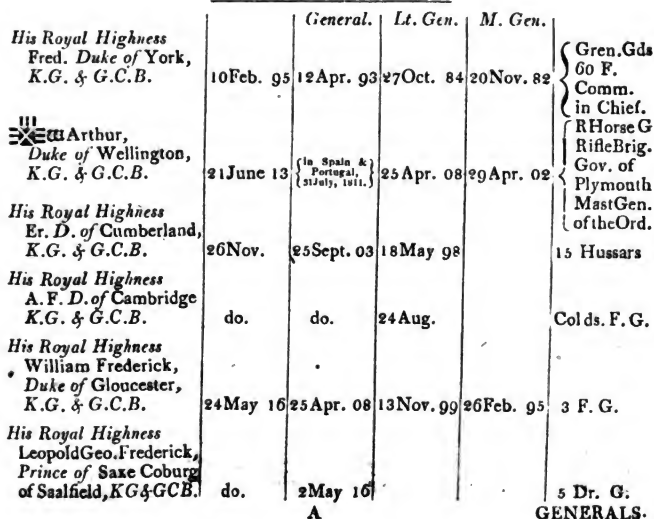 General. Lt. Gen. M. Gen.
His Royal Highness
Fred. Duke of York,
K.G. & G.C.B. 10Feb. 95 12Apr. 93 27Oct. 84 20Nov. 82 Gren.Gds
60 F.
Comm.
in Chief.
Arthur,
Duke of Wellington,
K.G. & G.C.B. 21June 13 {in Spain & Portugal, 31July, 1811.} 25Apr. 08 29Apr. 02 RHorse G
RifleBrig.
Gov. of
Plymouth
MastGen.
oftheOrd.
His Royal Highness
Er. D. of Cumberland,
K.G. & G.C.B. 26Nov. 25Sept. 03 18May 98 15 Hussars
His Royal Highness
A. F. D. of Cambridge
K.G. & G.C.B. do. do. 24Aug. Colds. F. G.
His Royal Highness
William Frederick,
Duke of Gloucester,
K.G. & G.C.B. 24May 16 25Apr. 08 13Nov. 99 26Feb. 95 3 F. G.
His Royal Highness
LeopoldGeo.Frederick,
Prince of Saxe Coburg
of Saalfield, KG&GCB. do. 2May 16 5 Dr. G.
A GENERALS.